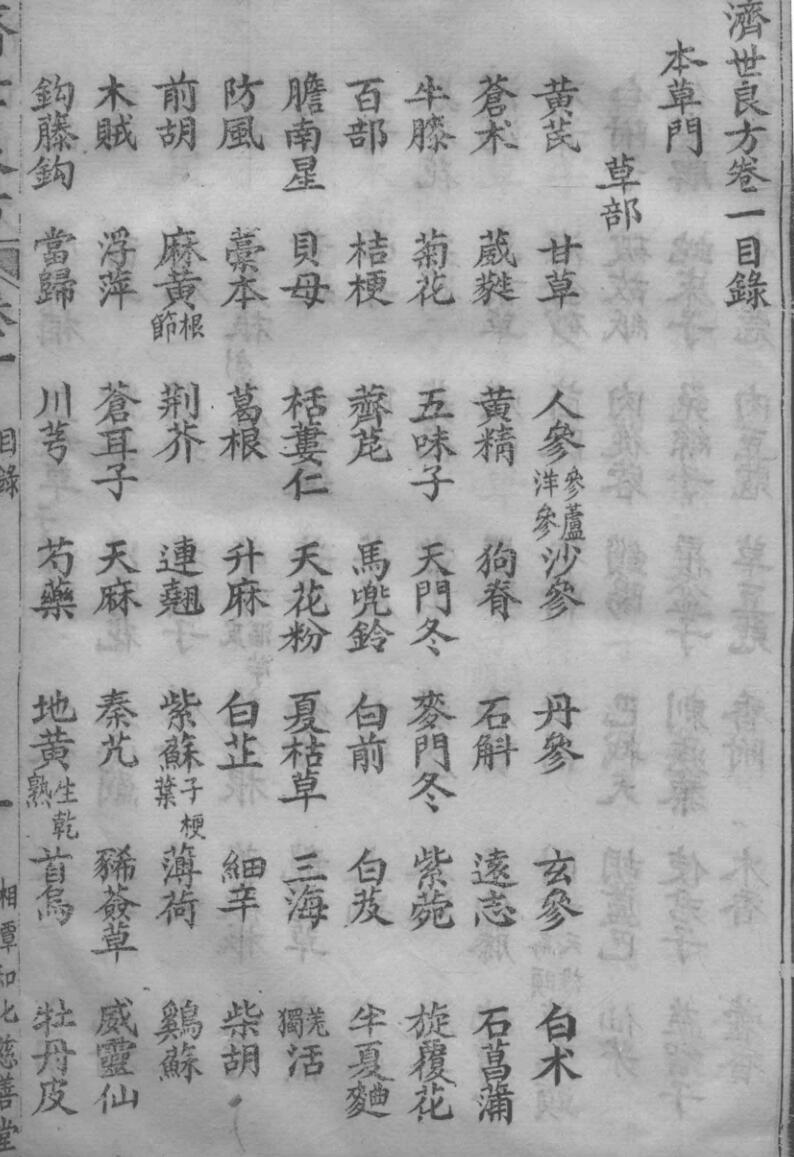 濟世良方卷一目錄
本草門
草部
黃芪 甘草 人參參蘆洋參 沙參 丹參 玄參 白术
蒼术 葳蕤 黃精 狗脊 石斛 遠志 石菖蒲
牛膝 菊花 五味子 天門冬 麥門冬 紫菀 旋覆花
百部 桔梗 薺苨 馬兜鈴 白前 白芨 半夏麯
膽南星 貝母 栝蔞仁 天花粉 夏枯草 三海 羌獨活
防風 藁本 葛根 升麻 白芷 細辛 柴胡
前胡 麻黃根節 荆芥 連翹 紫蘇子梗葉 薄荷 鷄蘇
木賊 浮萍 蒼耳子 天麻 秦艽 豨薟草 威靈仙
鈎藤鈎 當歸 川芎 芍藥 地黃生乾熟 首烏 牡丹皮
目錄
一
相潭和化慈善堂